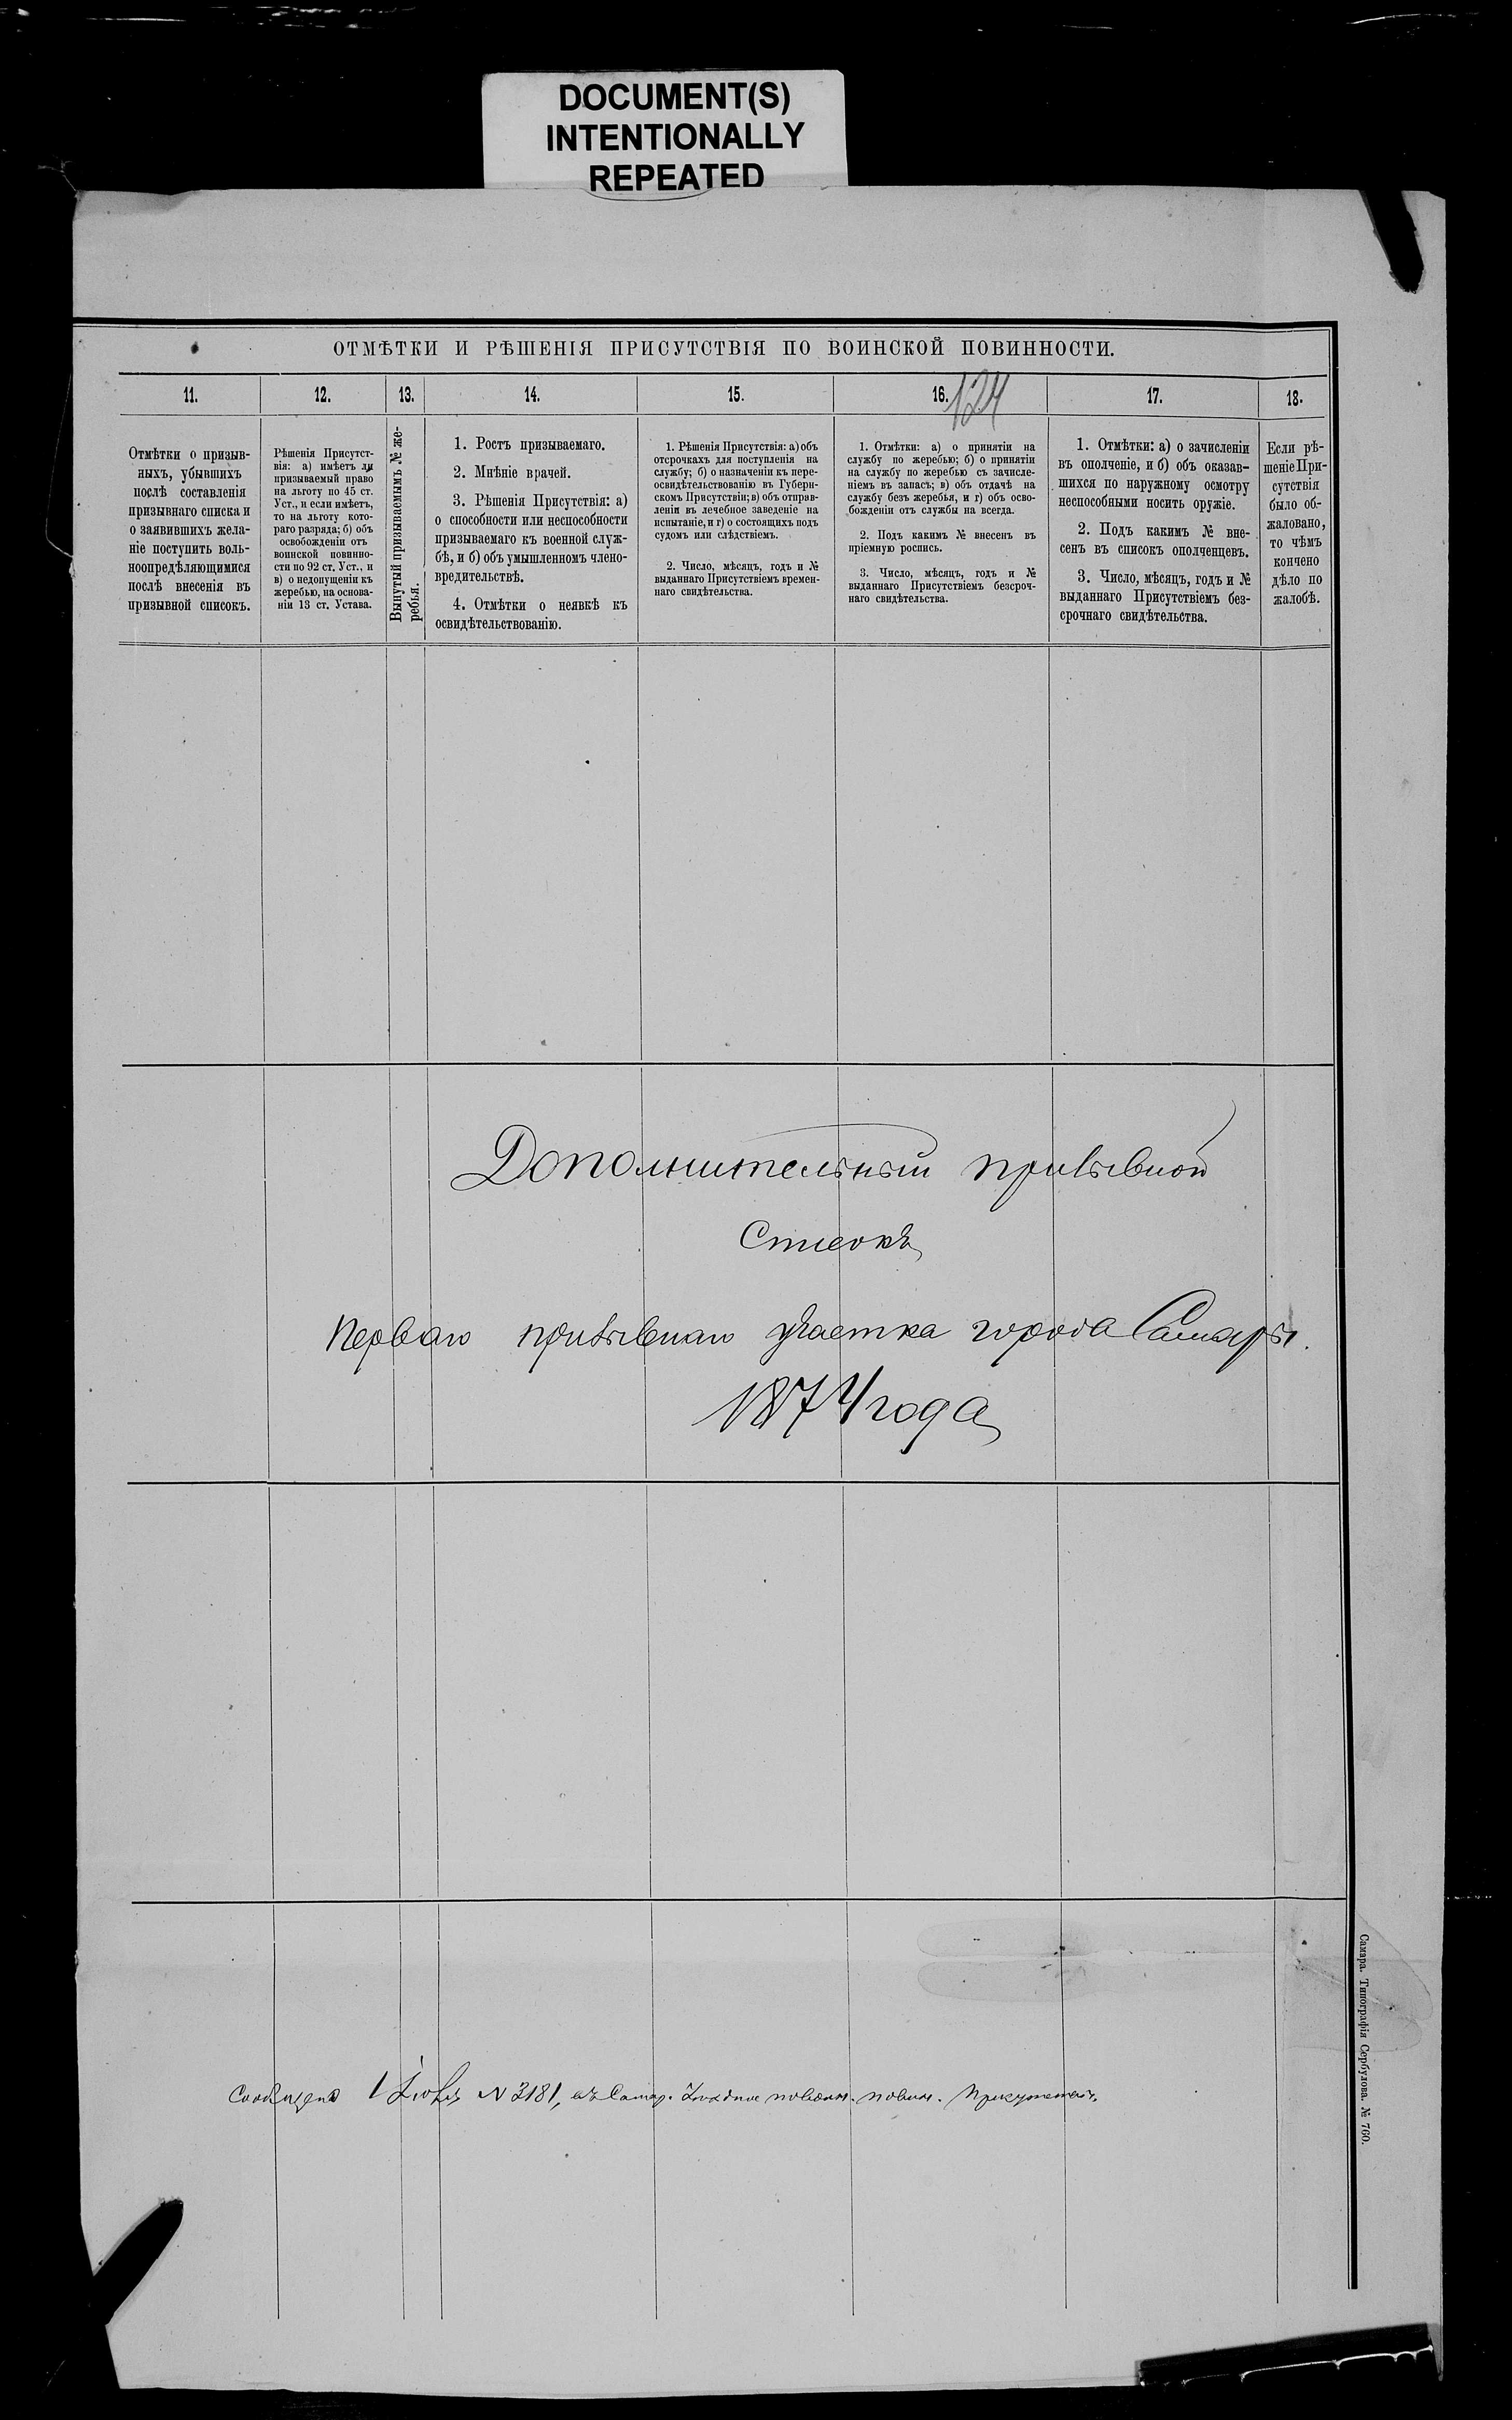 DOCUMENT(S)
INTENTIONALLY
REPEATED
ОТМѢТКИ И РѢШЕНІЯ ПРИСУТСТВІЯ ПО ВОИНСКОЙ ПОВИННОСТИ.
124
11.
Отмѣтки о призыв-
ныхъ, убывшихъ
послѣ составленія
призывнаго списка и
о заявившихъ жела-
ніе поступить воль-
ноопредѣляющимися
послѣ внесенія въ
призывной списокъ.
12.
Рѣшенія Присутст-
вія: а) имѣетъ ли
призываемый право
на льготу по 45 ст.
Уст., и если имѣетъ,
то на льготу кото-
раго разряда; б) объ
освобожденіи отъ
воинской повинно-
сти по 92 ст. Уст., и
в) о недопущеніи къ
жеребью, на основа-
ніи 13 ст. Устава.
13.
Вынутый призываемымъ № же-
ребья.
14.
1. Ростъ призываемаго.
2. Мнѣніе врачей.
3. Рѣшенія Присутствія: а)
о способности или неспособности
призываемаго къ военной служ-
бѣ, и б) объ умышленномъ члено-
вредительствѣ.
4. Отмѣтки о неявкѣ къ
освидѣтельствованію.
15.
1. Рѣшенія Присутствія: а) объ
отсрочкахъ для поступленія на
службу; б) о назначеніи къ пере-
освидѣтельствованію въ Губерн-
скомъ Присутствіи; в) объ отправ-
леніи въ лечебное заведеніе на
испытаніе, и г) о состоящихъ подъ
судомъ или слѣдствіемъ.
2. Число, мѣсяцъ, годъ и №
выданнаго Присутствіемъ времен-
наго свидѣтельства.
16.
1. Отмѣтки: а) о принятіи на
службу по жеребью; б) о принятіи
на службу по жеребью съ зачисле-
ніемъ въ запасъ; в) объ отдачѣ на
службу безъ жеребья, и г) объ осво-
божденіи отъ службы на всегда.
2. Подъ какимъ № внесенъ въ
пріемную роспись.
3. Число, мѣсяцъ, годъ и №
выданнаго Присутствіемъ безсроч-
наго свидѣтельства.
17.
1. Отмѣтки: а) о зачисленіи
въ ополченіе, и б) объ оказав-
шихся по наружному осмотру
неспособными носить оружіе.
2. Подъ какимъ № вне-
сенъ въ списокъ ополченцевъ.
3. Число, мѣсяцъ, годъ и №
выданнаго Присутствіемъ без-
срочнаго свидѣтельства.
18.
Если рѣ-
шеніе При-
сутствія
было об-
жаловано,
то чѣмъ
кончено
дѣло по
жалобѣ.
Дополнительный призывной
Списокъ
Перваго призывнаго участка города Самары.
1874 года
Сообщено 1 N 3181, въ Самар. повин. Присутствіе
Самара. Типографія Сербулова. № 760.